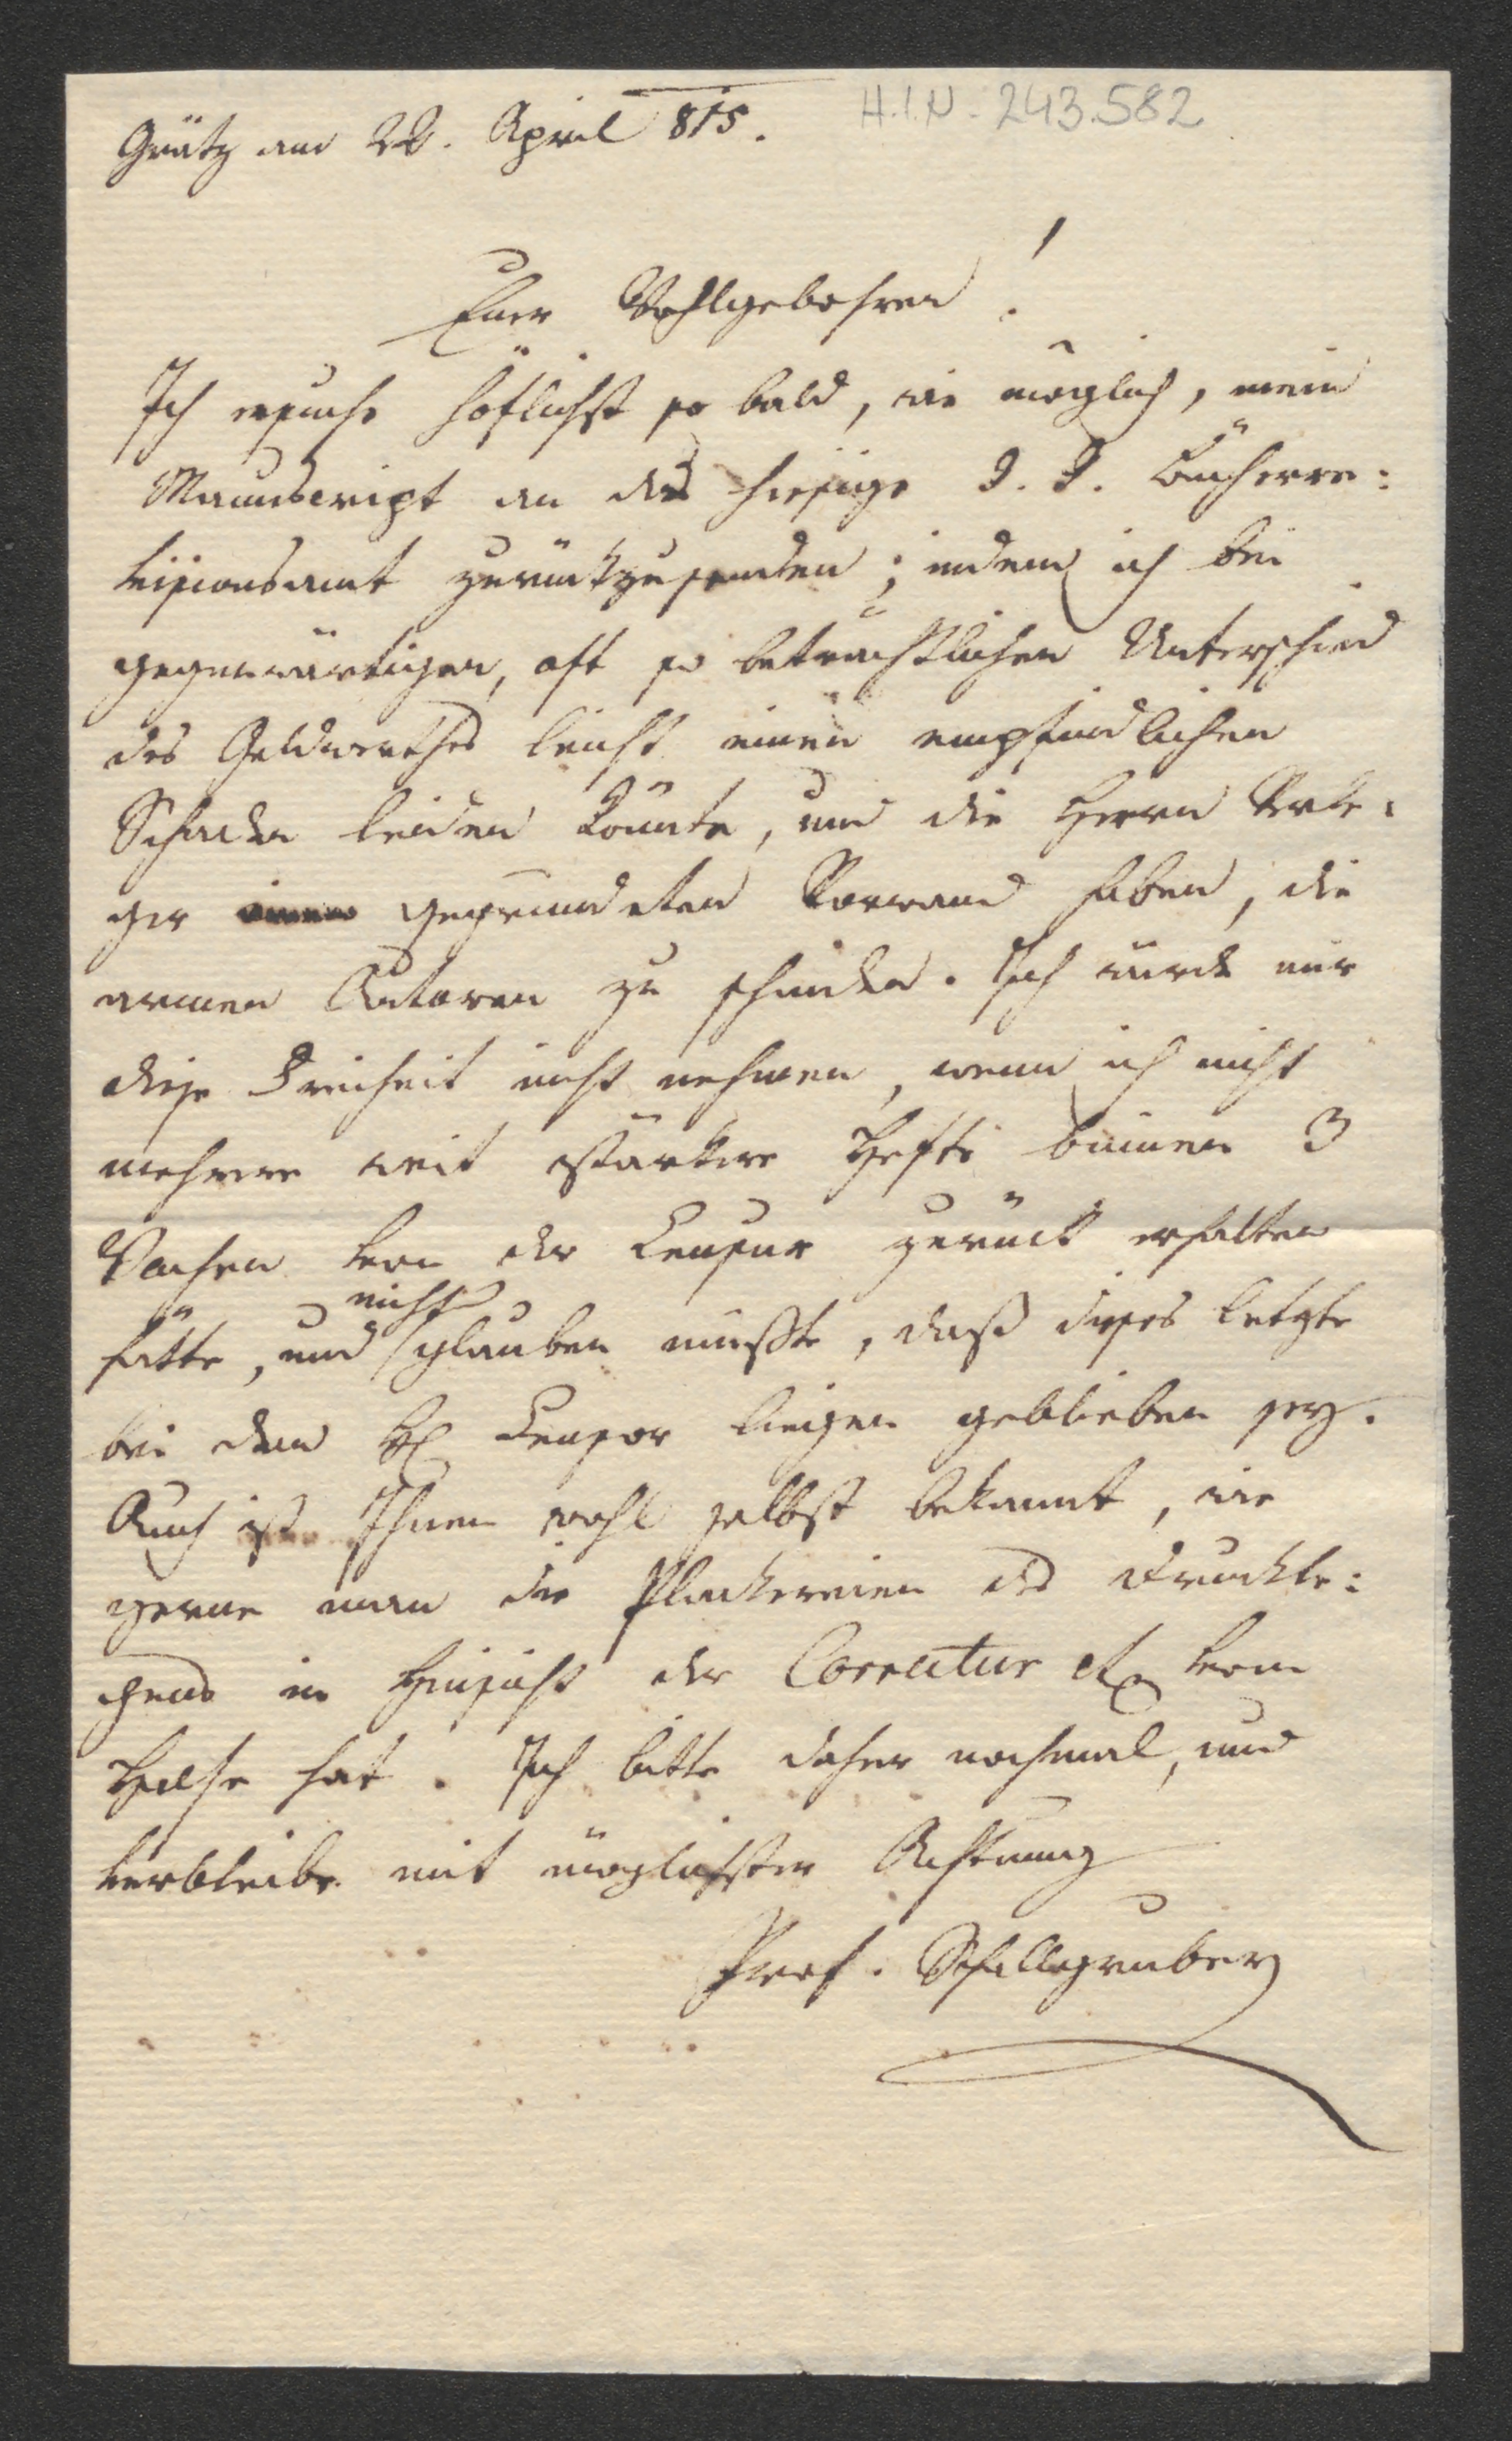 H.I.N. 243.582
Grätz am 22. April 815.
Euer Wohlgebohren!
Ich ersuche höflichst so bald, wie möglich, mein
Manuscript an das hiesige k. k. Bücherre:
visionsamt zurückzusenden; indem ich bei
gegenwärtigen, oft so beträchtlichen Unterschied
des Geldwerthes leicht einen empfindlichen
Schaden leiden könnte, und die Herrn Verle:
ger einen gegründeten Vorwand haben, die
armen Autoren zu schinden. Ich würde mir
diese Freiheit nicht nehmen, wenn ich nicht
mehrere weit stärkere Hefte binnen 3
Wochen von der Censur zurück erhalten
nicht
hätte, und glauben müßte, daß dieses letzte
bei dem H. Censor liegen geblieben sey.
Auch ist Ihnen wohl selbst bekannt, wie
gerne man die Plackereien des Druckle:
gens in Hinsicht der Correctur etc vom
Halse hat. Ich bitte daher nochmal, und
verbleibe mit möglichster Achtung
Prof. Schallgruber